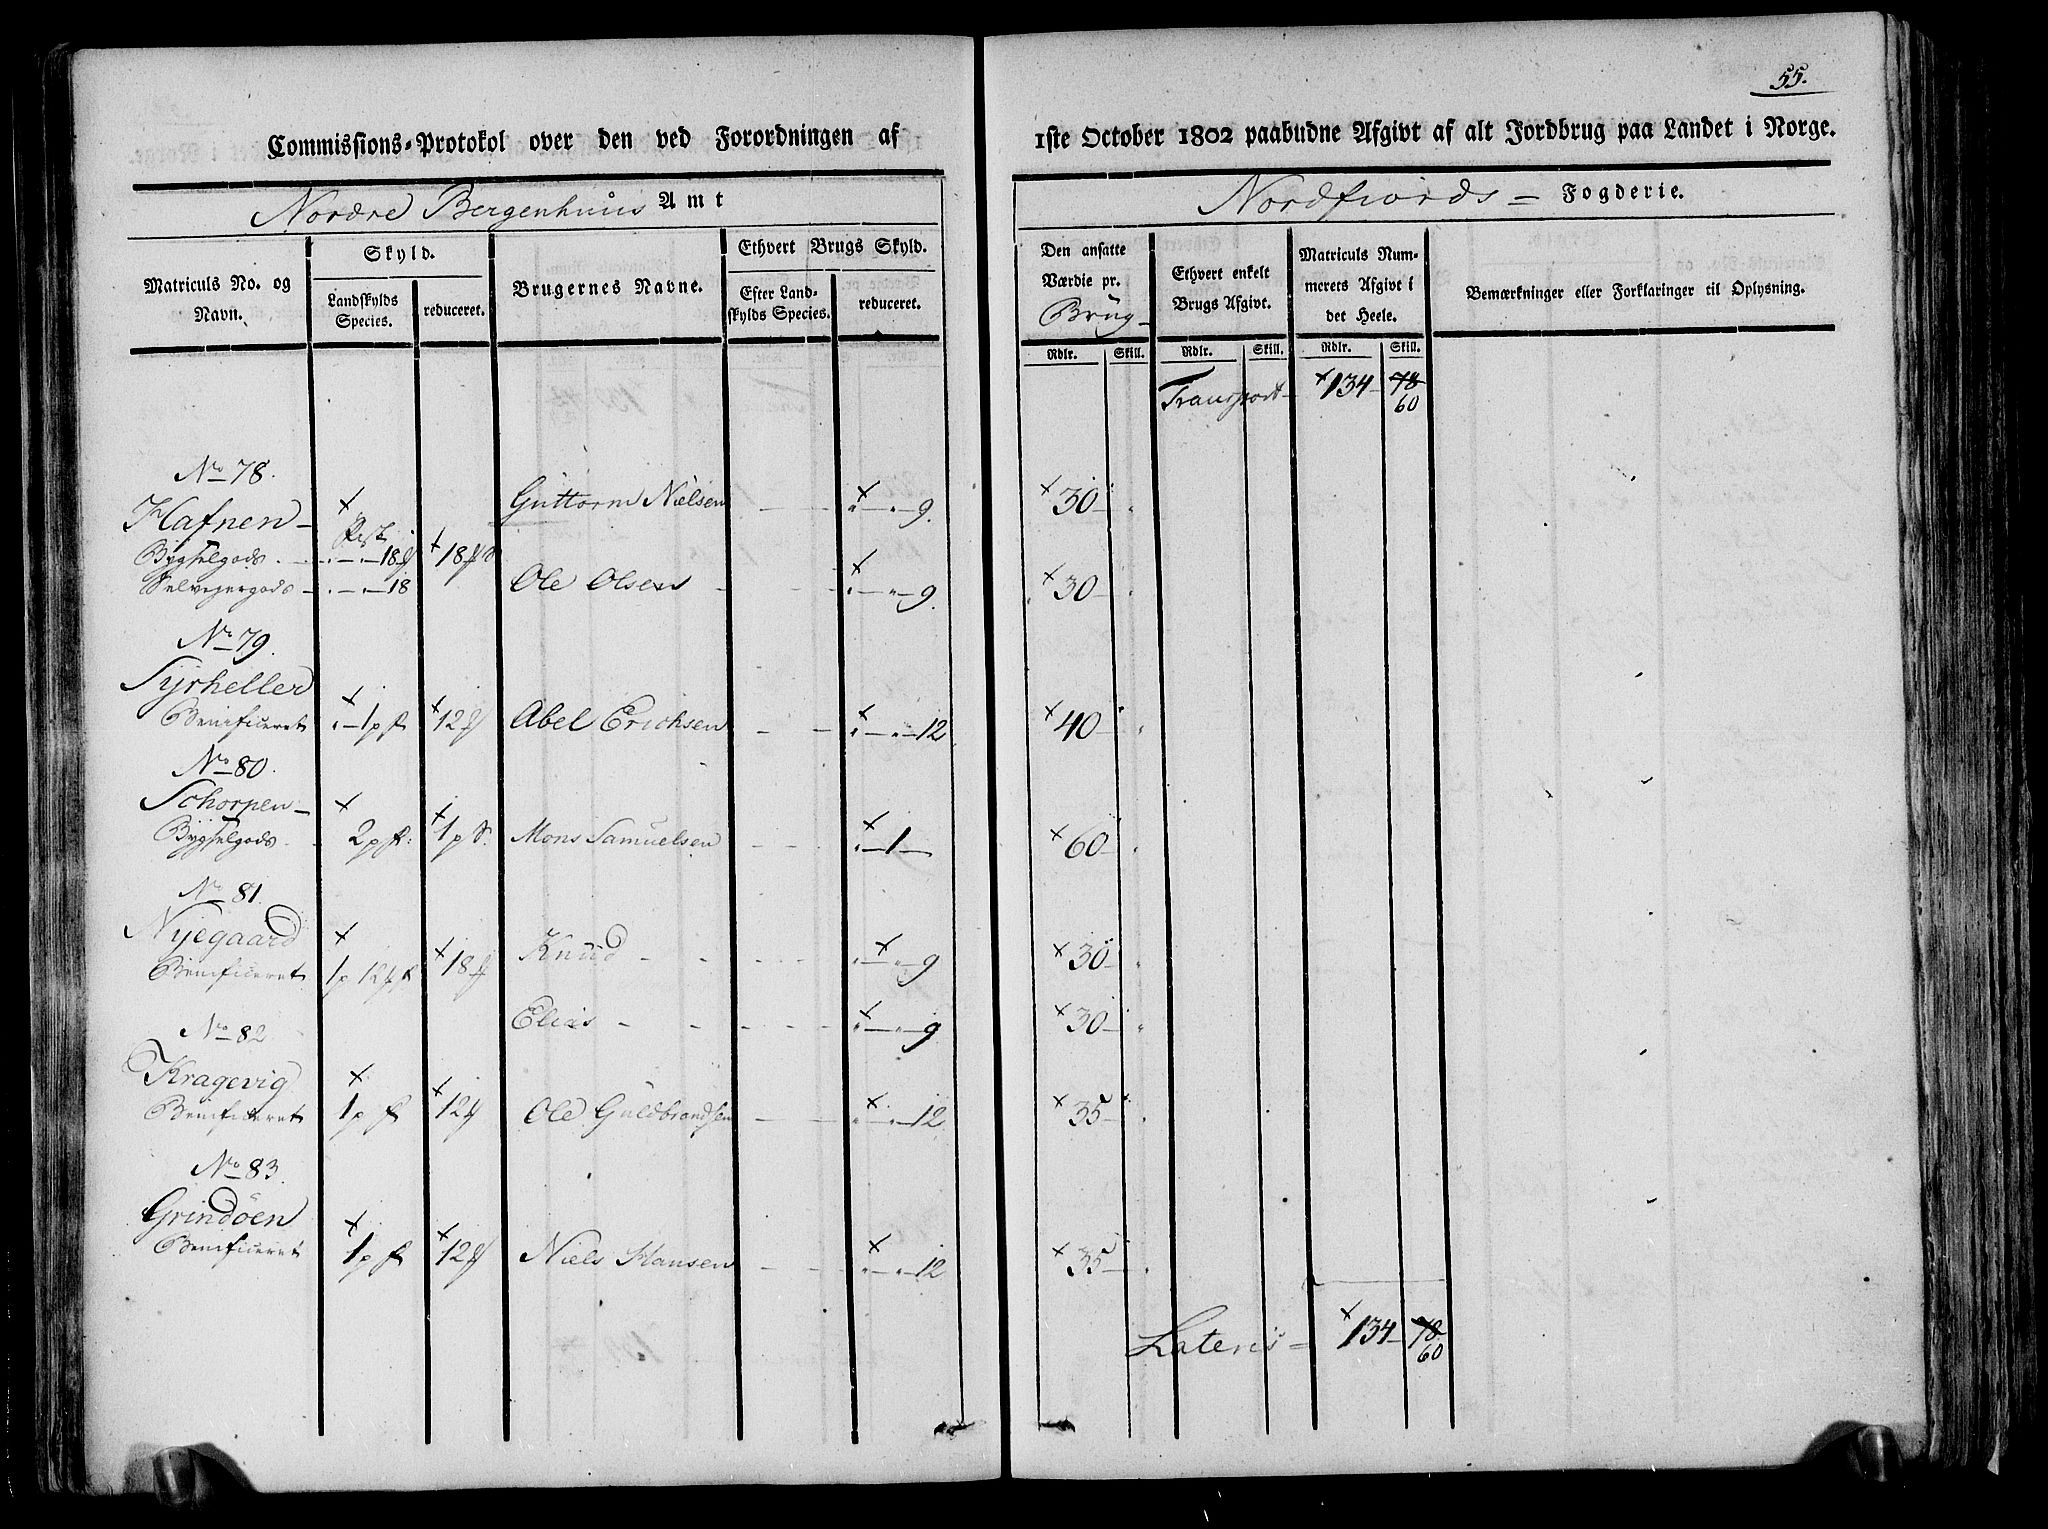 55.
Commissions-Protokol over den ved Forordningen af 1ste October 1802 paabudne Afgivt af alt Jordbrug paa Landet i Norge.
Nordre Bergenhuus Amt
Nordfiords = Fogderie.
Matriculs No. og Navn.
Skyld.
Landskylds Species.
reduceret.
Brugernes Navne.
Ethvert Brugs Skyld.
Efter Landskylds Species.
reduceret.
Den ansatte Værdie pr. Brug
Rdlr. Skill.
Ethvert enkelt Brugs Afgivt.
Rdlr. Skill.
Matriculs Nummerets Afgivt i det Heele.
Rdlr. Skill.
Bemærkninger eller Forklaringer til Oplysning.
Transport 134 78 60
No 78.
Hafnen Guttorm Nielsen 9. 30
Bygselgods 18 18
Selvejergods 18 Ole Olsen 9. 30
No 79.
Syrheller
Benificeret 1 p f 12 Abel Erichsen 12 40
No 80.
Schorpen
Bygselgods 2 p f 1 p Mons Samuelsen 1 60
No 81.
Nyegaard Knud 9 30
Benificeret 1 p 12 18
Elias 9 30
No 82
Kragevig
Benificeret 1 p f 12 Ole Guldbrandsen 12 35
No 83.
Grindöen
Benificeret 1 p f 12 Niels Hansen 12 35
Lateris = 134 78 60